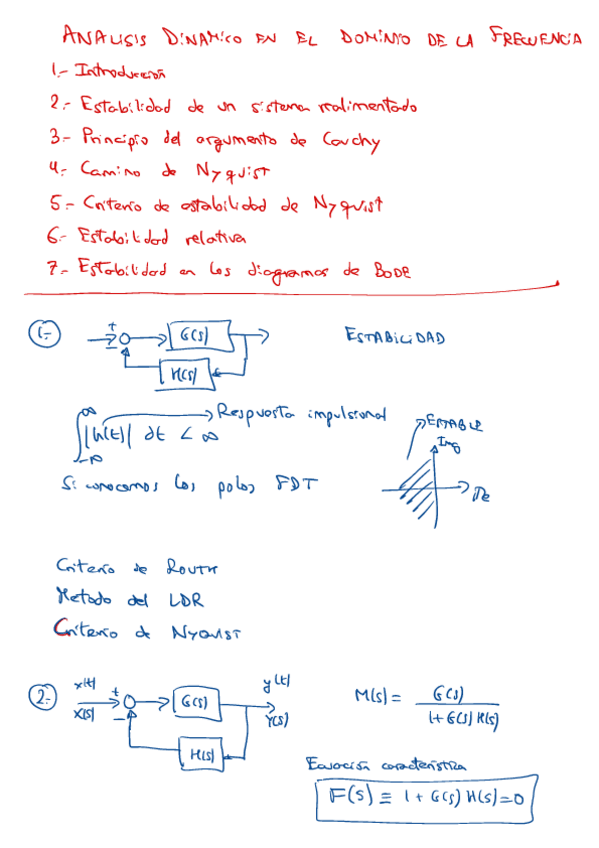 ANALISIS DINAMICO EN EL DOMINIO DE LA FRECUENCIA
1.- Introducción
2.- Estabilidad de un sistema realimentado
3.- Principio del argumento de Cauchy
4.- Camino de Nyquist
5.- Criterio de estabilidad de Nyquist
6.- Estabilidad relativa
7.- Estabilidad en los diagramas de BODE
1.- + - G(s) H(s) ESTABILIDAD
∫_{-∞}^{∞} |h(t)| dt < ∞ → Respuesta impulsional
ESTABLE
Img
Re
Si conocemos los polos FDT
Criterio de ROUTH
Metodo del LDR
Criterio de NYQUIST
2.- x(t) X(s) + - G(s) H(s) y(t) Y(s)
M(s) = G(s) / 1+G(s)H(s)
Ecuación característica
F(s) ≡ 1 + G(s) H(s) = 0